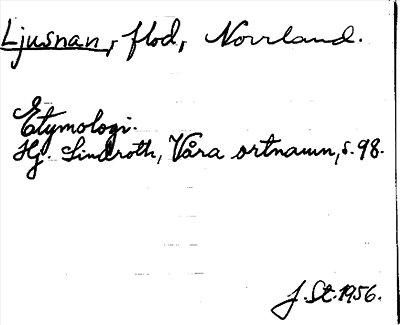 Ljusnan, flod, Norrland.
Etymologi.
Hj. Lindroth, Våra ortnamn, s. 98.
J. St. 1956.